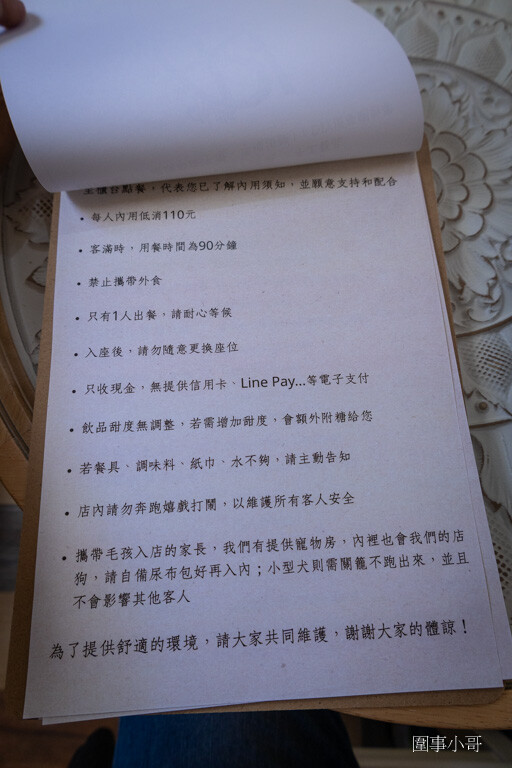 至櫃台點餐，代表您已了解內用須知，並願意支持和配合
• 每人內用低消110元
• 客滿時，用餐時間為90分鐘
• 禁止攜帶外食
• 只有1人出餐，請耐心等候
• 入座後，請勿隨意更換座位
• 只收現金，無提供信用卡、Line Pay...等電子支付
• 飲品甜度無調整，若需增加甜度，會額外附糖給您
• 若餐具、調味料、紙巾、水不夠，請主動告知
• 店內請勿奔跑嬉戲打鬧，以維護所有客人安全
• 攜帶毛孩入店的家長，我們有提供寵物房，內裡也會我們的店
狗，請自備尿布包好再入內；小型犬則需關籠不跑出來，並且
不會影響其他客人
為了提供舒適的環境，請大家共同維護，謝謝大家的體諒！
圍事小哥